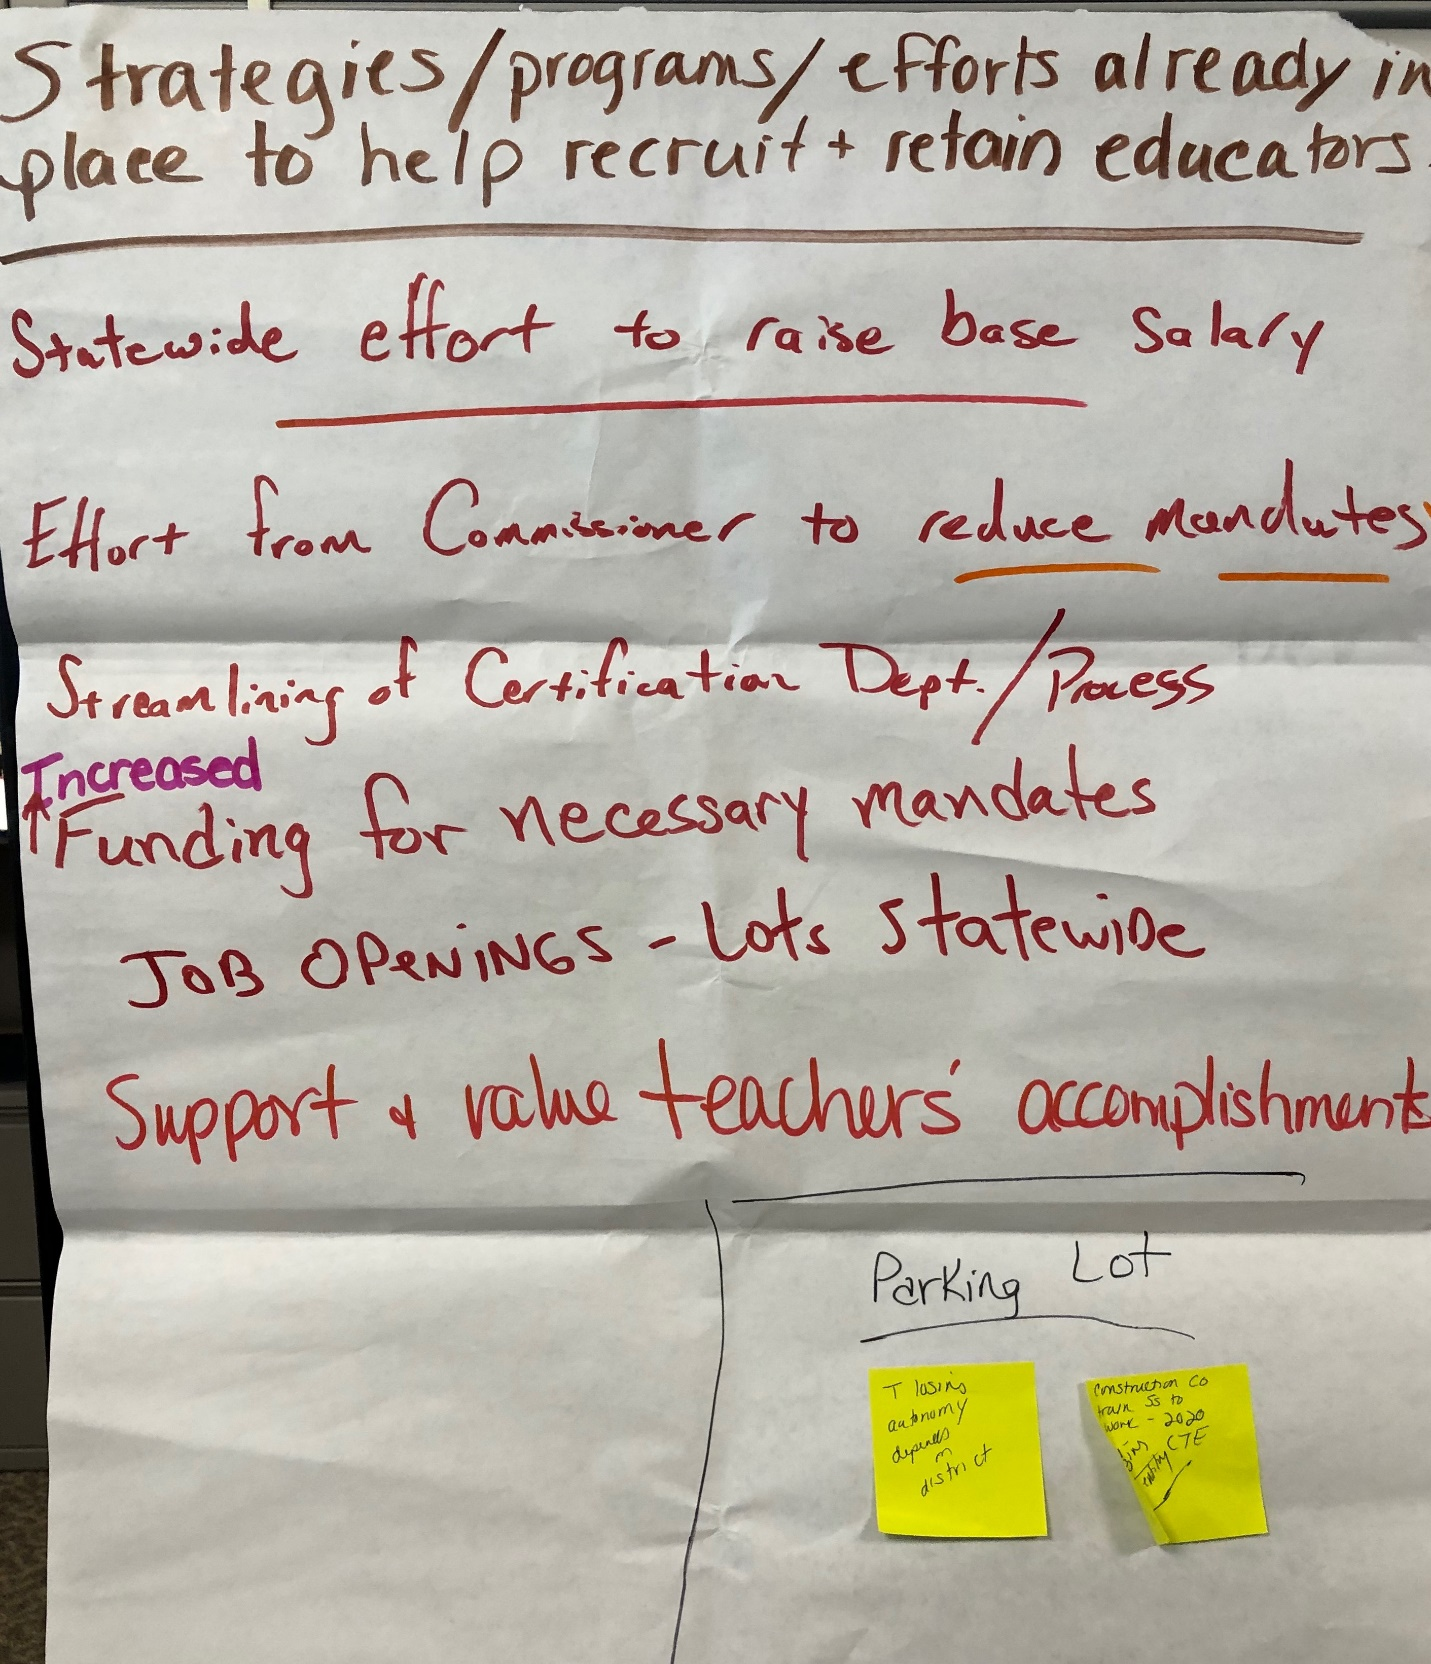 Strategies/programs/efforts already in
place to help recruit + retain educators.
Statewide effort to raise base salary
Effort from Commissioner to reduce mandates
Streamlining of Certification Dept./Process
Increased
↑Funding for necessary mandates
JOB OPENINGS - Lots statewide
Support & value teachers' accomplishments
Parking Lot
T losing
autonomy
depends
on
district
Construction Co
train Ss to
work - 2020
CTE
entity